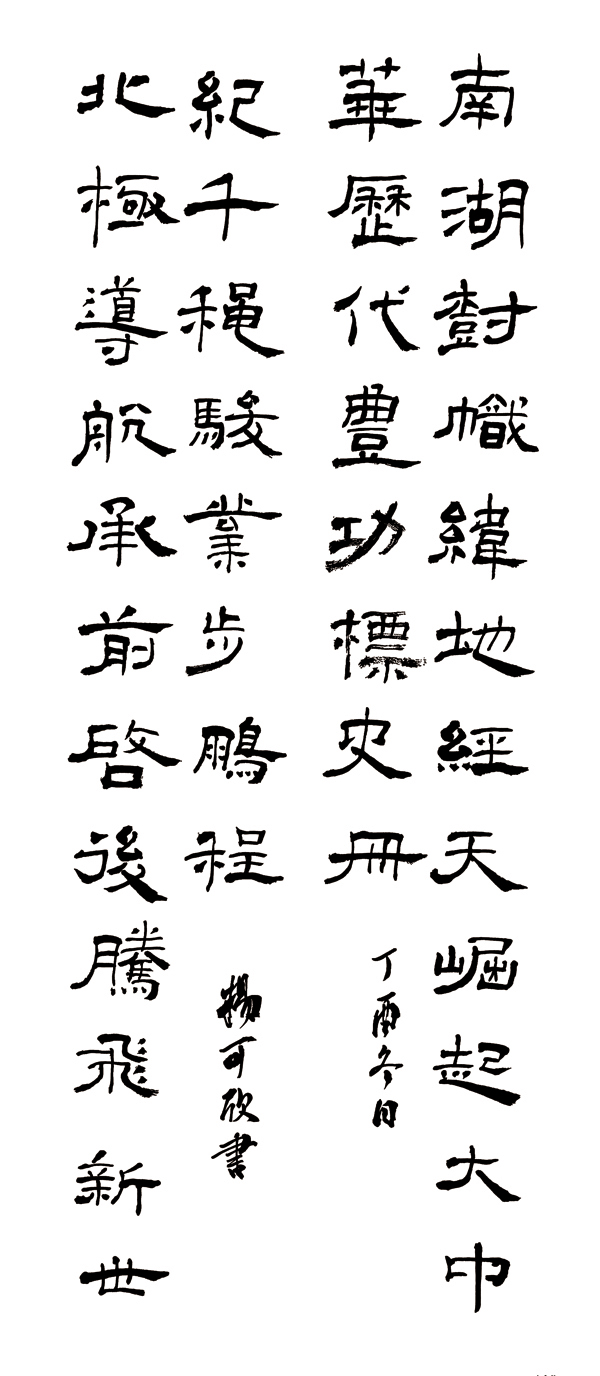 南湖尌幟緯地經天崛起大中
華歷代豐功標史冊
丁酉冬日
北極導航承前啓後騰飛新世
紀千穐駿業步鵬程
楊可欣書